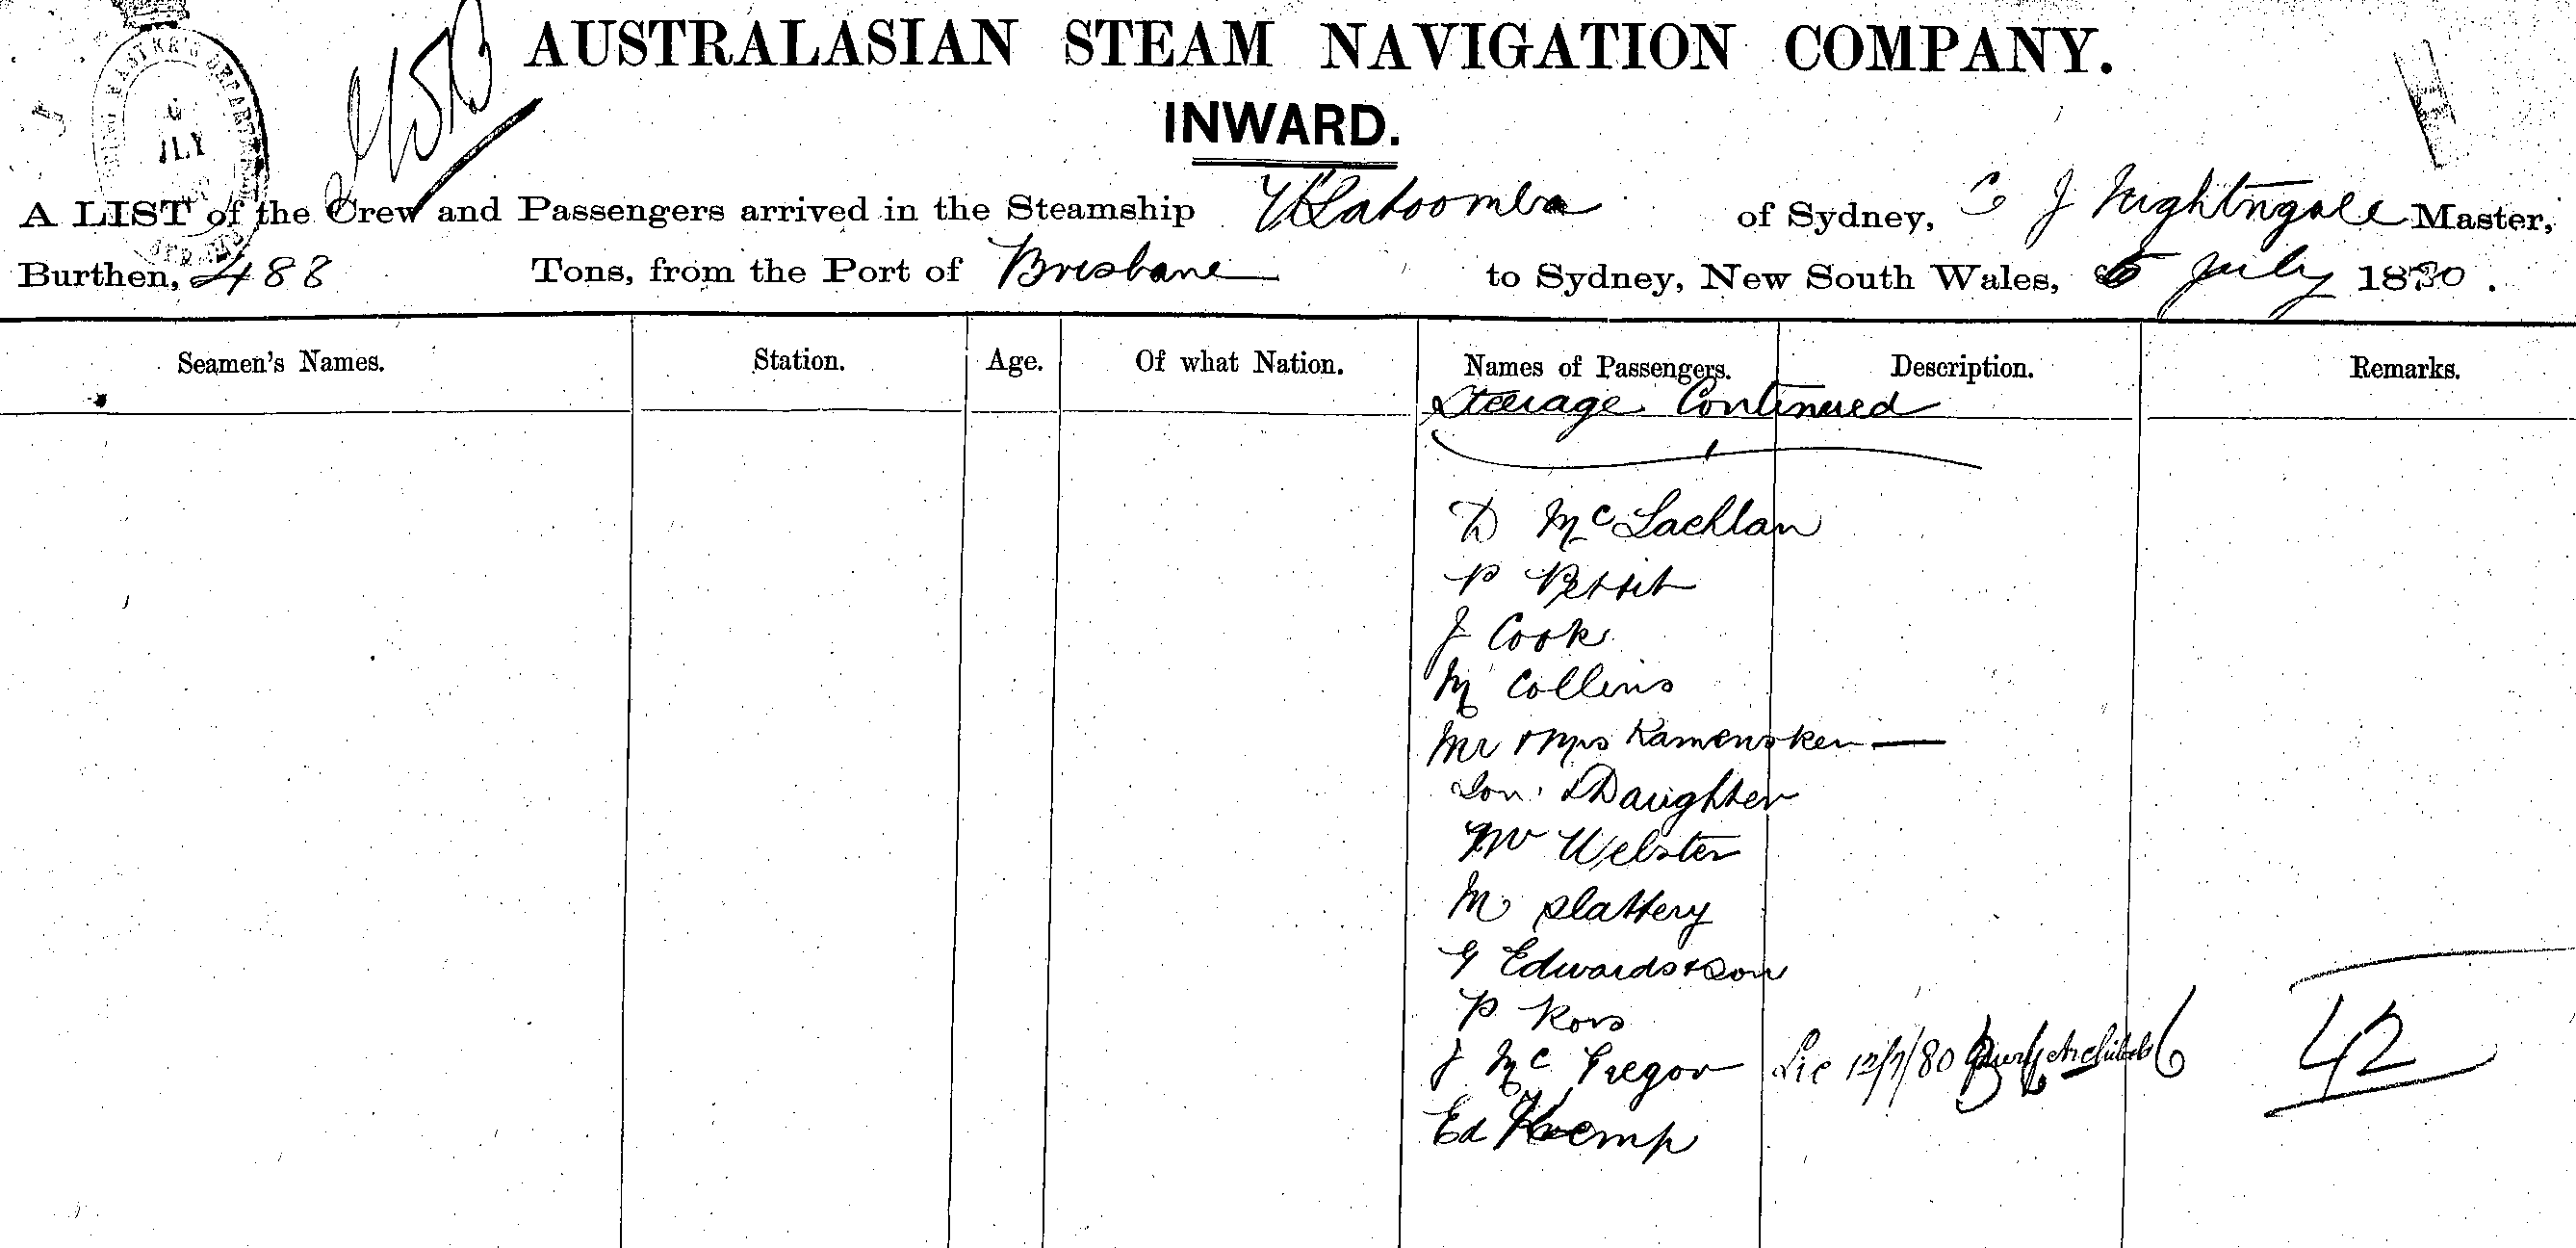 AUSTRALASIAN STEAM NAVIGATION COMPANY.
INWARD.
A LIST of the Crew and Passengers arrived in the Steamship Katoomba of Sydney, C J Nightingale Master,
Burthen, 488 Tons, from the Port of Brisbane to Sydney, New South Wales, 5 July 1880.
Seamen's Names. Station. Age. Of what Nation. Names of Passengers. Description. Remarks.
Steerage Continued
D McLachlan
P Pettit
J Cook
M Collins
Mr & Mrs Kamensker
Son & Daughter
Mr Webster
M Slattery
G Edwards & Son
P Ross
J McGregor 12/7/80 42
Ed Kemp